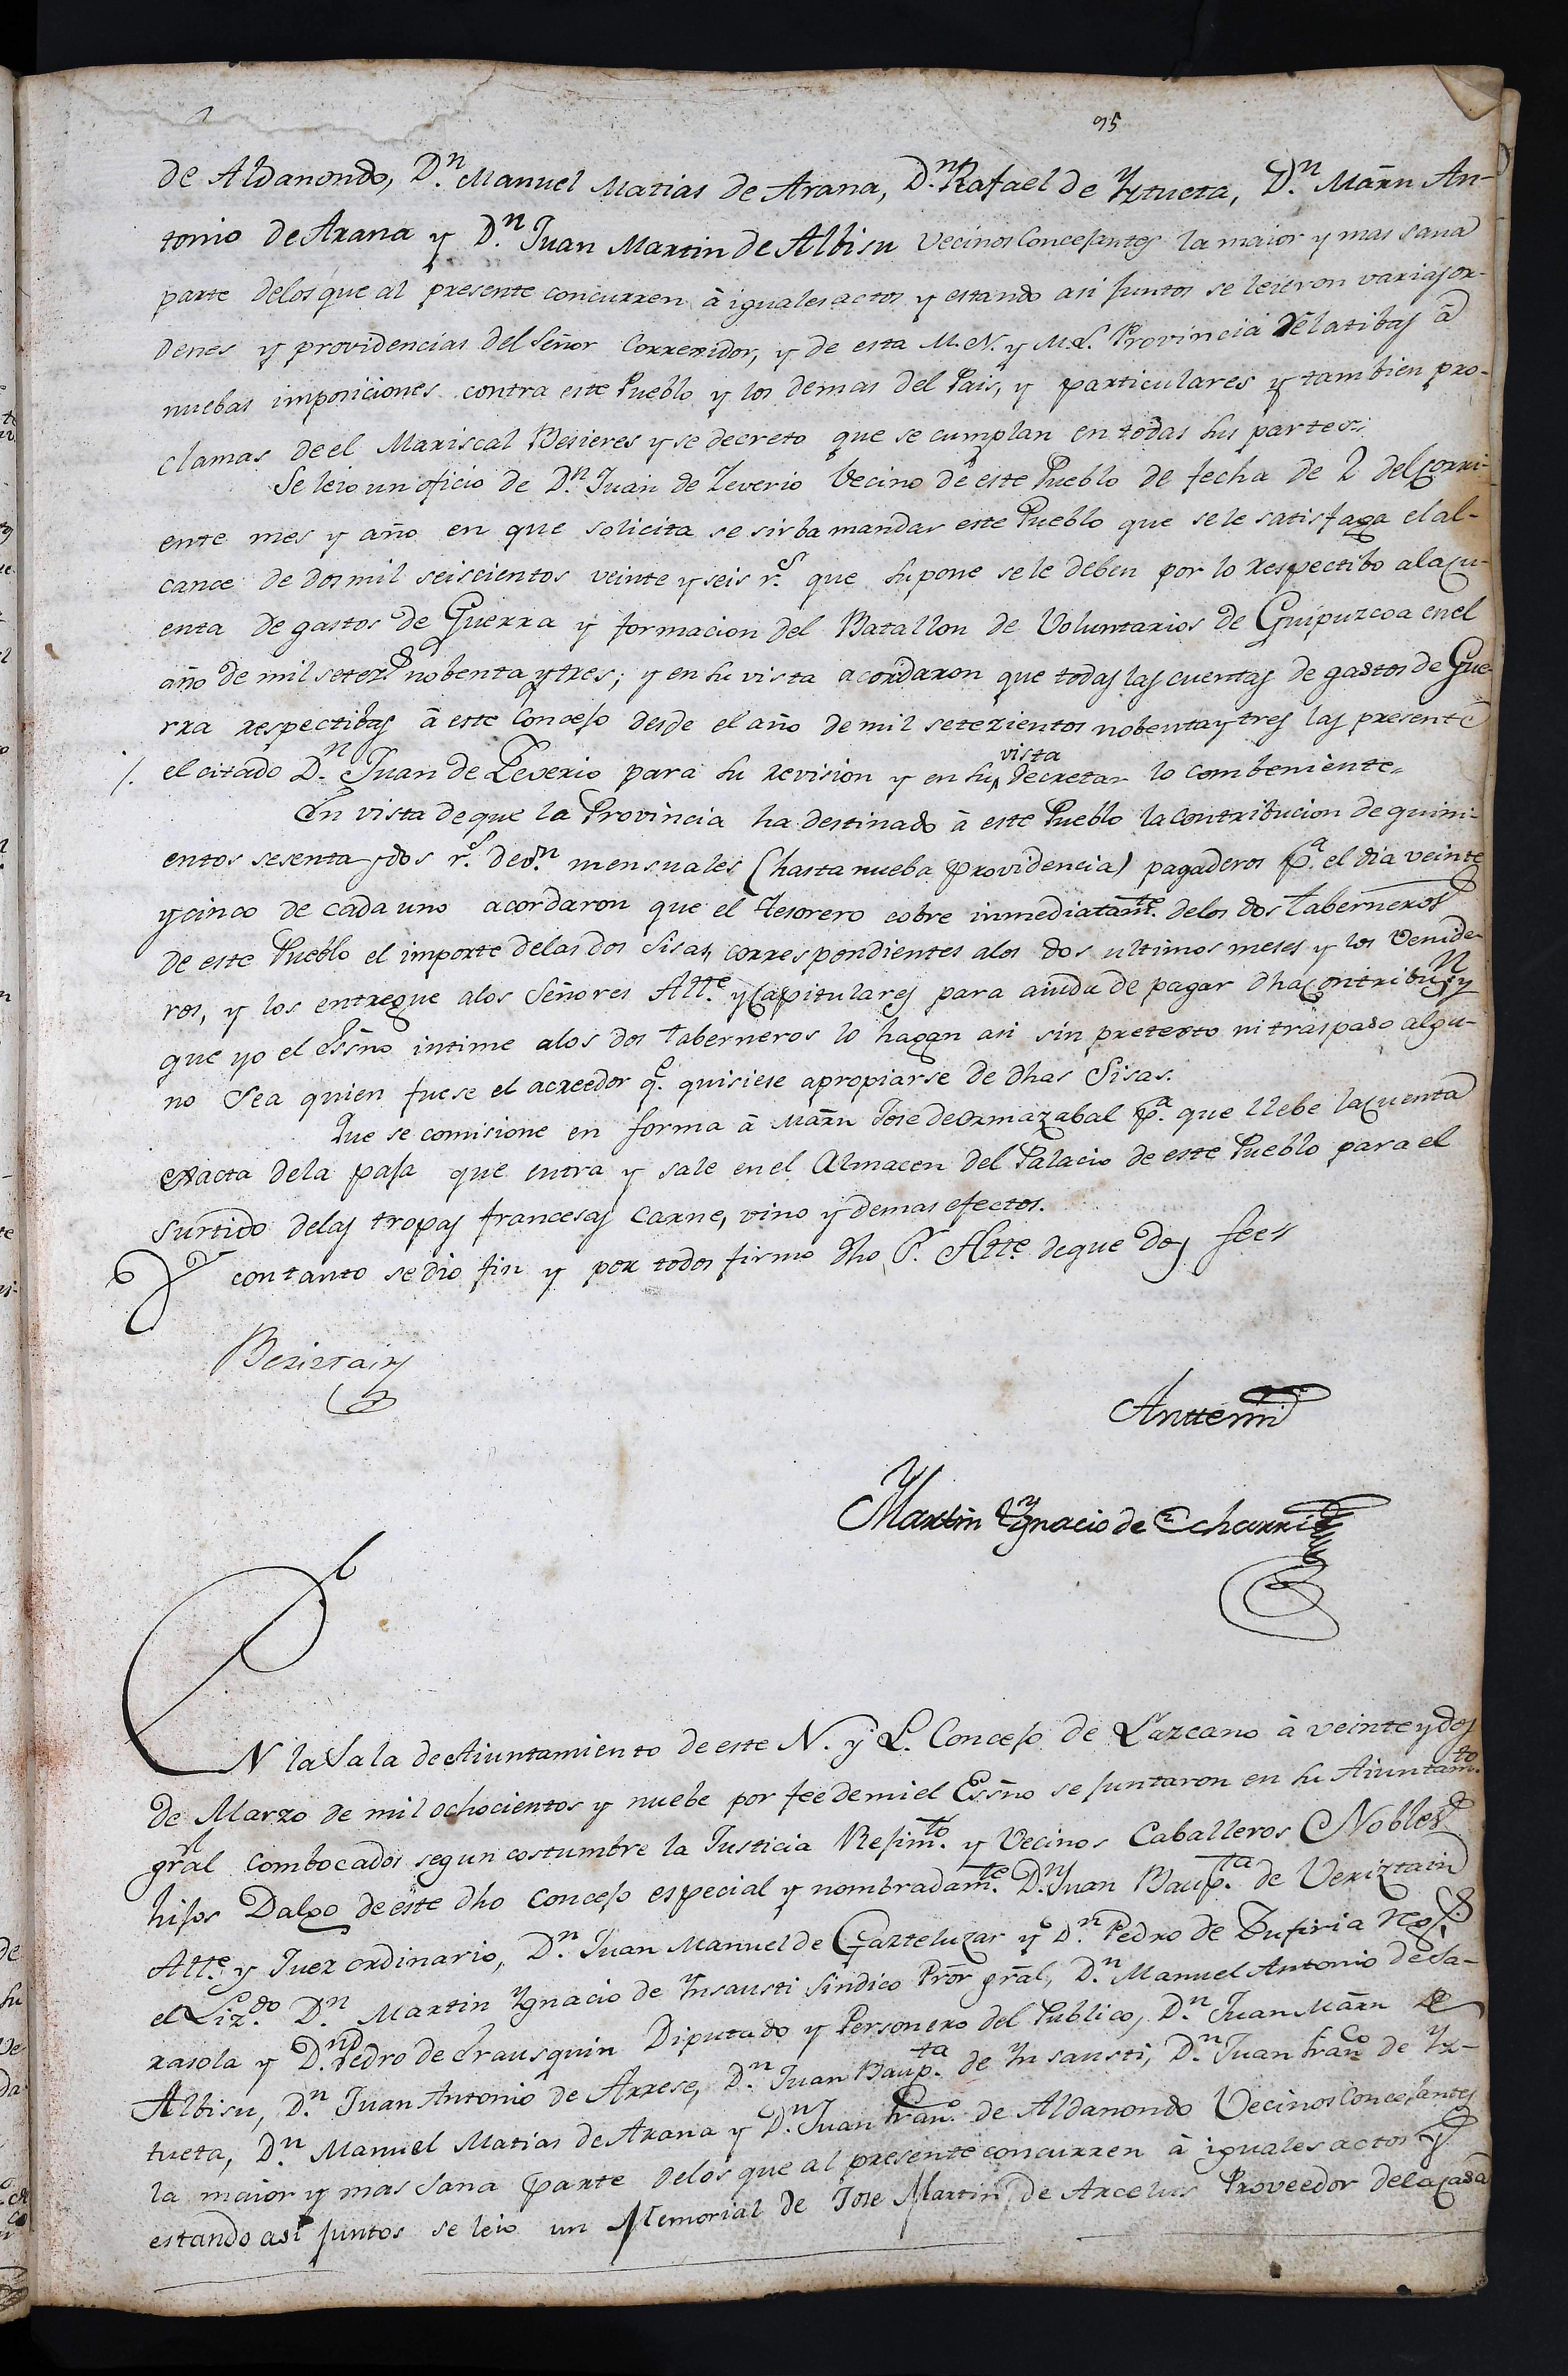 95
de Aldanondo, D.n Manuel Matias de Arana, D.n Rafael de Yztueta, D.n Marñ An-
tonio de Arana y D.n Juan Martin de Albisu Vecinos Concejantes la maior y mas sana
parte delos que al presente concurren à iguales actos y estando asi juntos se leieron varias or-
denes y providencias del Señor Correxidor, y de esta M.N. y M.L. Provincia relatibas à
nuebas imposiciones contra este Pueblo y los demas del Pais, y particulares y tambien pro-
clamas de el Mariscal Besieres y se decreto que se cumplan en todas sus partes.
Se leio un oficio de D.n Juan de Zeverio Vecino de este Pueblo de fecha de 2 del corri-
ente mes y año en que solicita se sirba mandar este Pueblo que sele satisfaga el al-
cance de dos mil seiscientos veinte y seis r.s que supone sele deben por lo respectibo ala cu-
enta de gastos de Guerra y formacion del Batallon de Voluntarios de Guipuzcoa en el
año de mil setez.s nobenta y tres; y en su vista acordaron que todas las cuentas de gastos de Gue-
rra respectibas à este Concejo desde el año de mil setezientos nobenta y tres las presente
el citado D.n Juan de Zeverio para su revision y en su vista decretar lo combeniente=
En vista de que la Provincia ha destinado à este Pueblo la contribucion de quini-
entos sesenta y dos r.s de v.n mensuales (hasta nueba Providencia) pagaderos p.a el dia veinte
y cinco de cada uno acordaron que el tesorero cobre inmediatam.te delos dos taberneros
de este Pueblo el importe delas dos sisas, correspondientes alos dos ultimos meses y los venide-
ros, y los entregue alos Señores Alt.e y Capitulares para aiuda de pagar dha contribu.n y
que yo el Essño intime alos dos taberneros lo hagan asi sin pretexto ni traspaso algu-
no sea quien fuese el acreedor q.e quisiese apropiarse de dhas Sisas.
Que se comisione en forma à Marñ Jose de Ormazabal p.a que llebe la cuenta
exacta dela paja que entra y sale en el Almacen del Palacio de este Pueblo para el
surtido delas tropas francesas carne, vino y demas efectos.
Y con tanto se dio fin y por todos firmo dho S.r Alt.e de que doy fee
Beriztain
Anttemi
Martin Ygnacio de Echarri
EN la Sala de Aiuntamiento de este N. y L. Concejo de Lazcano à veinte y dos
de Marzo de mil ochocientos y nuebe por fee de mi el Essño se juntaron en su Aiuntam.to
gral combocados segun costumbre la Justicia Rejim.to y Vecinos Caballeros Nobles
hijos Dalgo de este dho concejo especial y nombradam.te D.n Juan Baup.ta de Veriztain
Alt.e y Juez ordinario, D.n Juan Manuel de Gazteluzar y D.n Pedro de Zufiria rex.s
el Liz.do D.n Martin Ygnacio de Ynsausti Sindico Pror gral, D.n Manuel Antonio de Sa-
rasola y D.n Pedro de Erausquin Diputado y Personero del Publico, D.n Juan Marñ de
Albisu, D.n Juan Antonio de Arrese, D.n Juan Baup.ta de Ynsausti, D.n Juan Fran.co de Yz-
tueta, D.n Manuel Matias de Arana y D.n Juan Fran.co de Aldanondo Vecinos Concejantes
la maior y mas sana parte delos que al presente concurren à iguales actos y
estando asi juntos se leio un Memorial de Jose Martin de Arcelus Proveedor dela casa